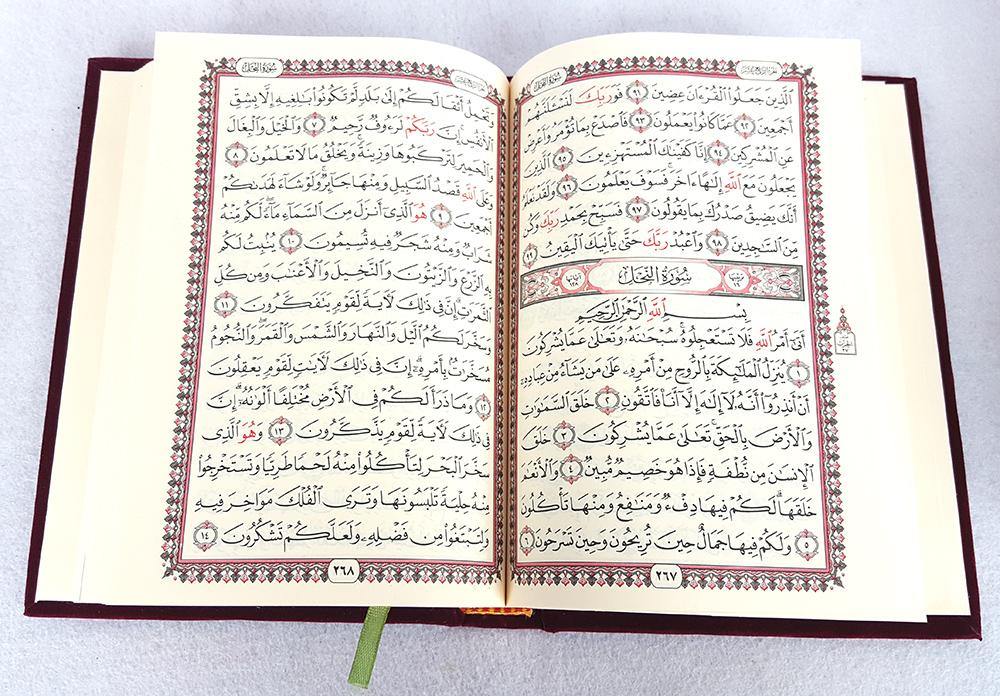 سُورَةُ النَّحْلِ
الجزء الرابع عشر
الَّذِينَ جَعَلُوا الْقُرْءَانَ عِضِينَ ٩١ فَوَرَبِّكَ لَنَسْـَٔلَنَّهُمْ
أَجْمَعِينَ ٩٢ عَمَّا كَانُوا يَعْمَلُونَ ٩٣ فَاصْدَعْ بِمَا تُؤْمَرُ وَأَعْرِضْ
عَنِ الْمُشْرِكِينَ ٩٤ إِنَّا كَفَيْنَٰكَ الْمُسْتَهْزِءِينَ ٩٥ الَّذِينَ
يَجْعَلُونَ مَعَ اللَّهِ إِلَٰهًا ءَاخَرَ فَسَوْفَ يَعْلَمُونَ ٩٦ وَلَقَدْ نَعْلَمُ
أَنَّكَ يَضِيقُ صَدْرُكَ بِمَا يَقُولُونَ ٩٧ فَسَبِّحْ بِحَمْدِ رَبِّكَ وَكُن
مِّنَ السَّٰجِدِينَ ٩٨ وَاعْبُدْ رَبَّكَ حَتَّىٰ يَأْتِيَكَ الْيَقِينُ ٩٩
ترتيبها ١٦ سُورَةُ النَّحْلِ آياتها ١٢٨
بِسْمِ اللَّهِ الرَّحْمَٰنِ الرَّحِيمِ
أَتَىٰ أَمْرُ اللَّهِ فَلَا تَسْتَعْجِلُوهُ ۚ سُبْحَٰنَهُ وَتَعَٰلَىٰ عَمَّا يُشْرِكُونَ
١ يُنَزِّلُ الْمَلَٰٓئِكَةَ بِالرُّوحِ مِنْ أَمْرِهِ عَلَىٰ مَن يَشَآءُ مِنْ عِبَادِهِ
أَنْ أَنذِرُوٓا أَنَّهُ لَآ إِلَٰهَ إِلَّآ أَنَا فَاتَّقُونِ ٢ خَلَقَ السَّمَٰوَٰتِ
وَالْأَرْضَ بِالْحَقِّ ۚ تَعَٰلَىٰ عَمَّا يُشْرِكُونَ ٣ خَلَقَ
الْإِنسَٰنَ مِن نُّطْفَةٍ فَإِذَا هُوَ خَصِيمٌ مُّبِينٌ ٤ وَالْأَنْعَٰمَ
خَلَقَهَا ۗ لَكُمْ فِيهَا دِفْءٌ وَمَنَٰفِعُ وَمِنْهَا تَأْكُلُونَ
٥ وَلَكُمْ فِيهَا جَمَالٌ حِينَ تُرِيحُونَ وَحِينَ تَسْرَحُونَ ٦
٢٦٧
سُورَةُ النَّحْلِ
وَتَحْمِلُ أَثْقَالَكُمْ إِلَىٰ بَلَدٍ لَّمْ تَكُونُوا بَٰلِغِيهِ إِلَّا بِشِقِّ
الْأَنفُسِ ۚ إِنَّ رَبَّكُمْ لَرَءُوفٌ رَّحِيمٌ ٧ وَالْخَيْلَ وَالْبِغَالَ
وَالْحَمِيرَ لِتَرْكَبُوهَا وَزِينَةً ۚ وَيَخْلُقُ مَا لَا تَعْلَمُونَ ٨
وَعَلَى اللَّهِ قَصْدُ السَّبِيلِ وَمِنْهَا جَآئِرٌ ۚ وَلَوْ شَآءَ لَهَدَىٰكُمْ
أَجْمَعِينَ ٩ هُوَ الَّذِىٓ أَنزَلَ مِنَ السَّمَآءِ مَآءً ۖ لَّكُم مِّنْهُ
شَرَابٌ وَمِنْهُ شَجَرٌ فِيهِ تُسِيمُونَ ١٠ يُنۢبِتُ لَكُم
بِهِ الزَّرْعَ وَالزَّيْتُونَ وَالنَّخِيلَ وَالْأَعْنَٰبَ وَمِن كُلِّ
الثَّمَرَٰتِ ۗ إِنَّ فِى ذَٰلِكَ لَءَايَةً لِّقَوْمٍ يَتَفَكَّرُونَ ١١
وَسَخَّرَ لَكُمُ الَّيْلَ وَالنَّهَارَ وَالشَّمْسَ وَالْقَمَرَ ۖ وَالنُّجُومُ
مُسَخَّرَٰتٌۢ بِأَمْرِهِ ۗ إِنَّ فِى ذَٰلِكَ لَءَايَٰتٍ لِّقَوْمٍ يَعْقِلُونَ
١٢ وَمَا ذَرَأَ لَكُمْ فِى الْأَرْضِ مُخْتَلِفًا أَلْوَٰنُهُ ۗ إِنَّ
فِى ذَٰلِكَ لَءَايَةً لِّقَوْمٍ يَذَّكَّرُونَ ١٣ وَهُوَ الَّذِى
سَخَّرَ الْبَحْرَ لِتَأْكُلُوا مِنْهُ لَحْمًا طَرِيًّا وَتَسْتَخْرِجُوا
مِنْهُ حِلْيَةً تَلْبَسُونَهَا وَتَرَى الْفُلْكَ مَوَاخِرَ فِيهِ
وَلِتَبْتَغُوا مِن فَضْلِهِ وَلَعَلَّكُمْ تَشْكُرُونَ ١٤
٢٦٨